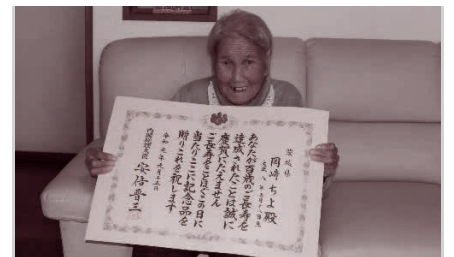 茨城県
岡崎ちよ殿
あなたが百歳のご長寿を
達成されたことは誠に
慶賀にたえません
ご長寿をことほぐこの日に
当たりここに記念品を
贈りこれを祝します
令和元年九月十五日
内閣総理大臣 安倍晋三